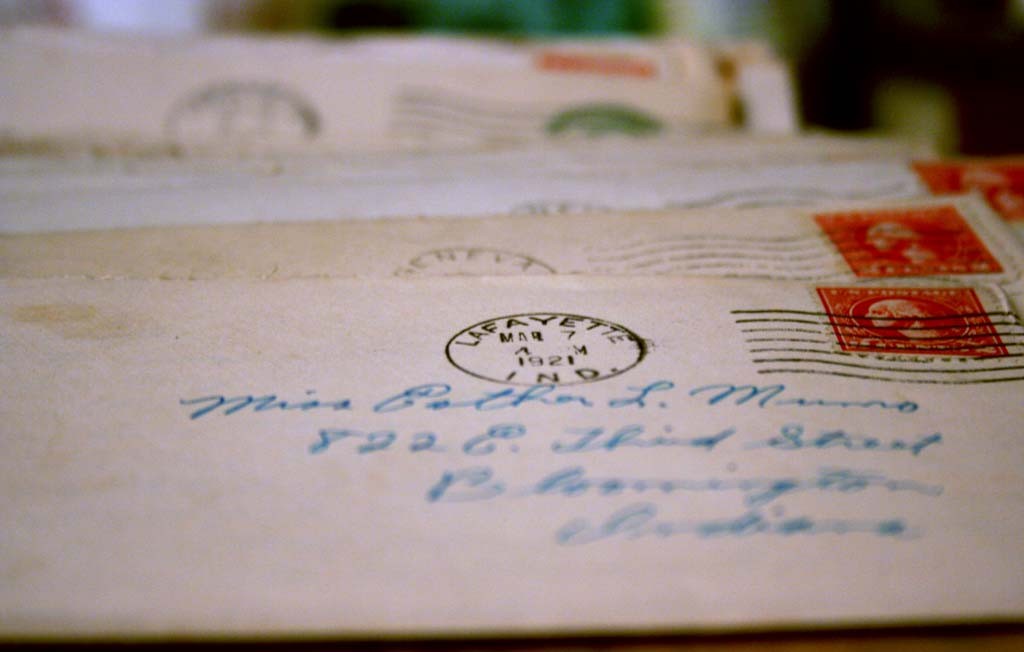 LAFAYETTE
MAR 7
A M
1921
IND.
Miss Esther L. Munro
822 E. Third Street
Bloomington
Indiana